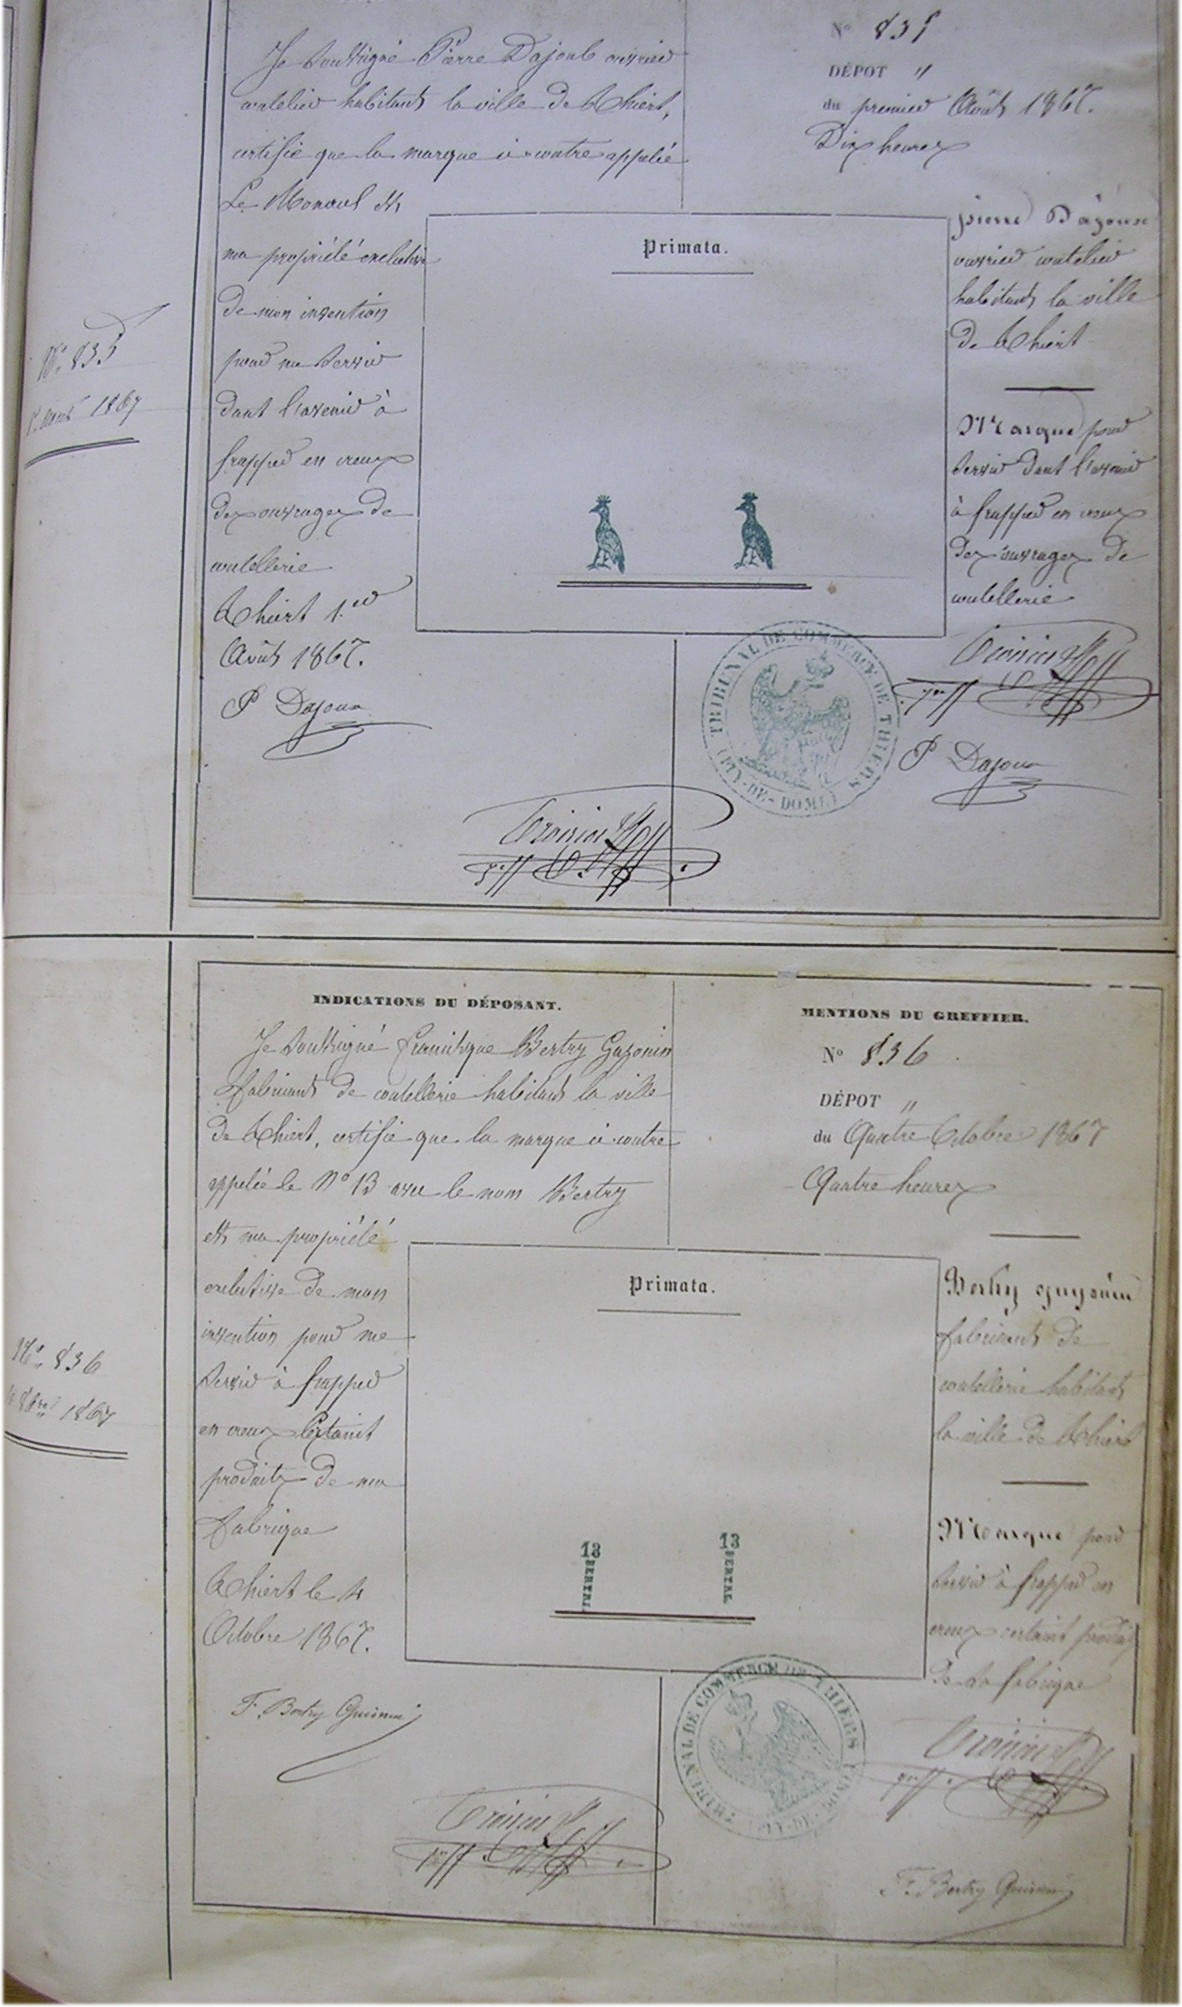 Je soussigné Pierre Dajoub ouvrier
coutelier habitant la ville de Thiers,
certifie que la marque ci contre appelée
Le Monaul est
ma propriété exclusive
de mon invention
pour me servir
dans l'avenir à
frapper en creux
des ouvrages de
coutellerie
Thiers 1.er
Août 1867.
P Dajoux
N° 835
DÉPOT "
du premier Août 1867.
Dix heures
pierre Dajoux
ouvrier coutelier
habitant la ville
de Thiers
Marque pour
servir dans l'avenir
à frapper en creux
des ouvrages de
coutellerie
P Dajoux
Primata.
TRIBUNAL DE COMMERCE DE THIERS
(PUY-DE-DOME)
N° 835
1. août 1867
INDICATIONS DU DÉPOSANT.
Je soussigné
fabricant de coutellerie habitant la ville
de Thiers, certifie que la marque ci contre
appelée le N° 13 avec le nom Bertry
est ma propriété
exclusive de mon
invention pour me
servir à frapper
en creux certains
produits de ma
fabrique
Thiers le 4
Octobre 1867.
F. Bertry
MENTIONS DU GREFFIER.
N° 836
DÉPOT "
du Quatre Octobre 1867
Quatre heures
Bertry
fabricant de
coutellerie habitant
la ville de Thiers
Marque pour
servir à frapper en
creux certains produits
de sa fabrique
F. Bertry
Primata.
13
13
TRIBUNAL DE COMMERCE DE THIERS
(PUY-DE-DOME)
N° 836
4 8bre 1867